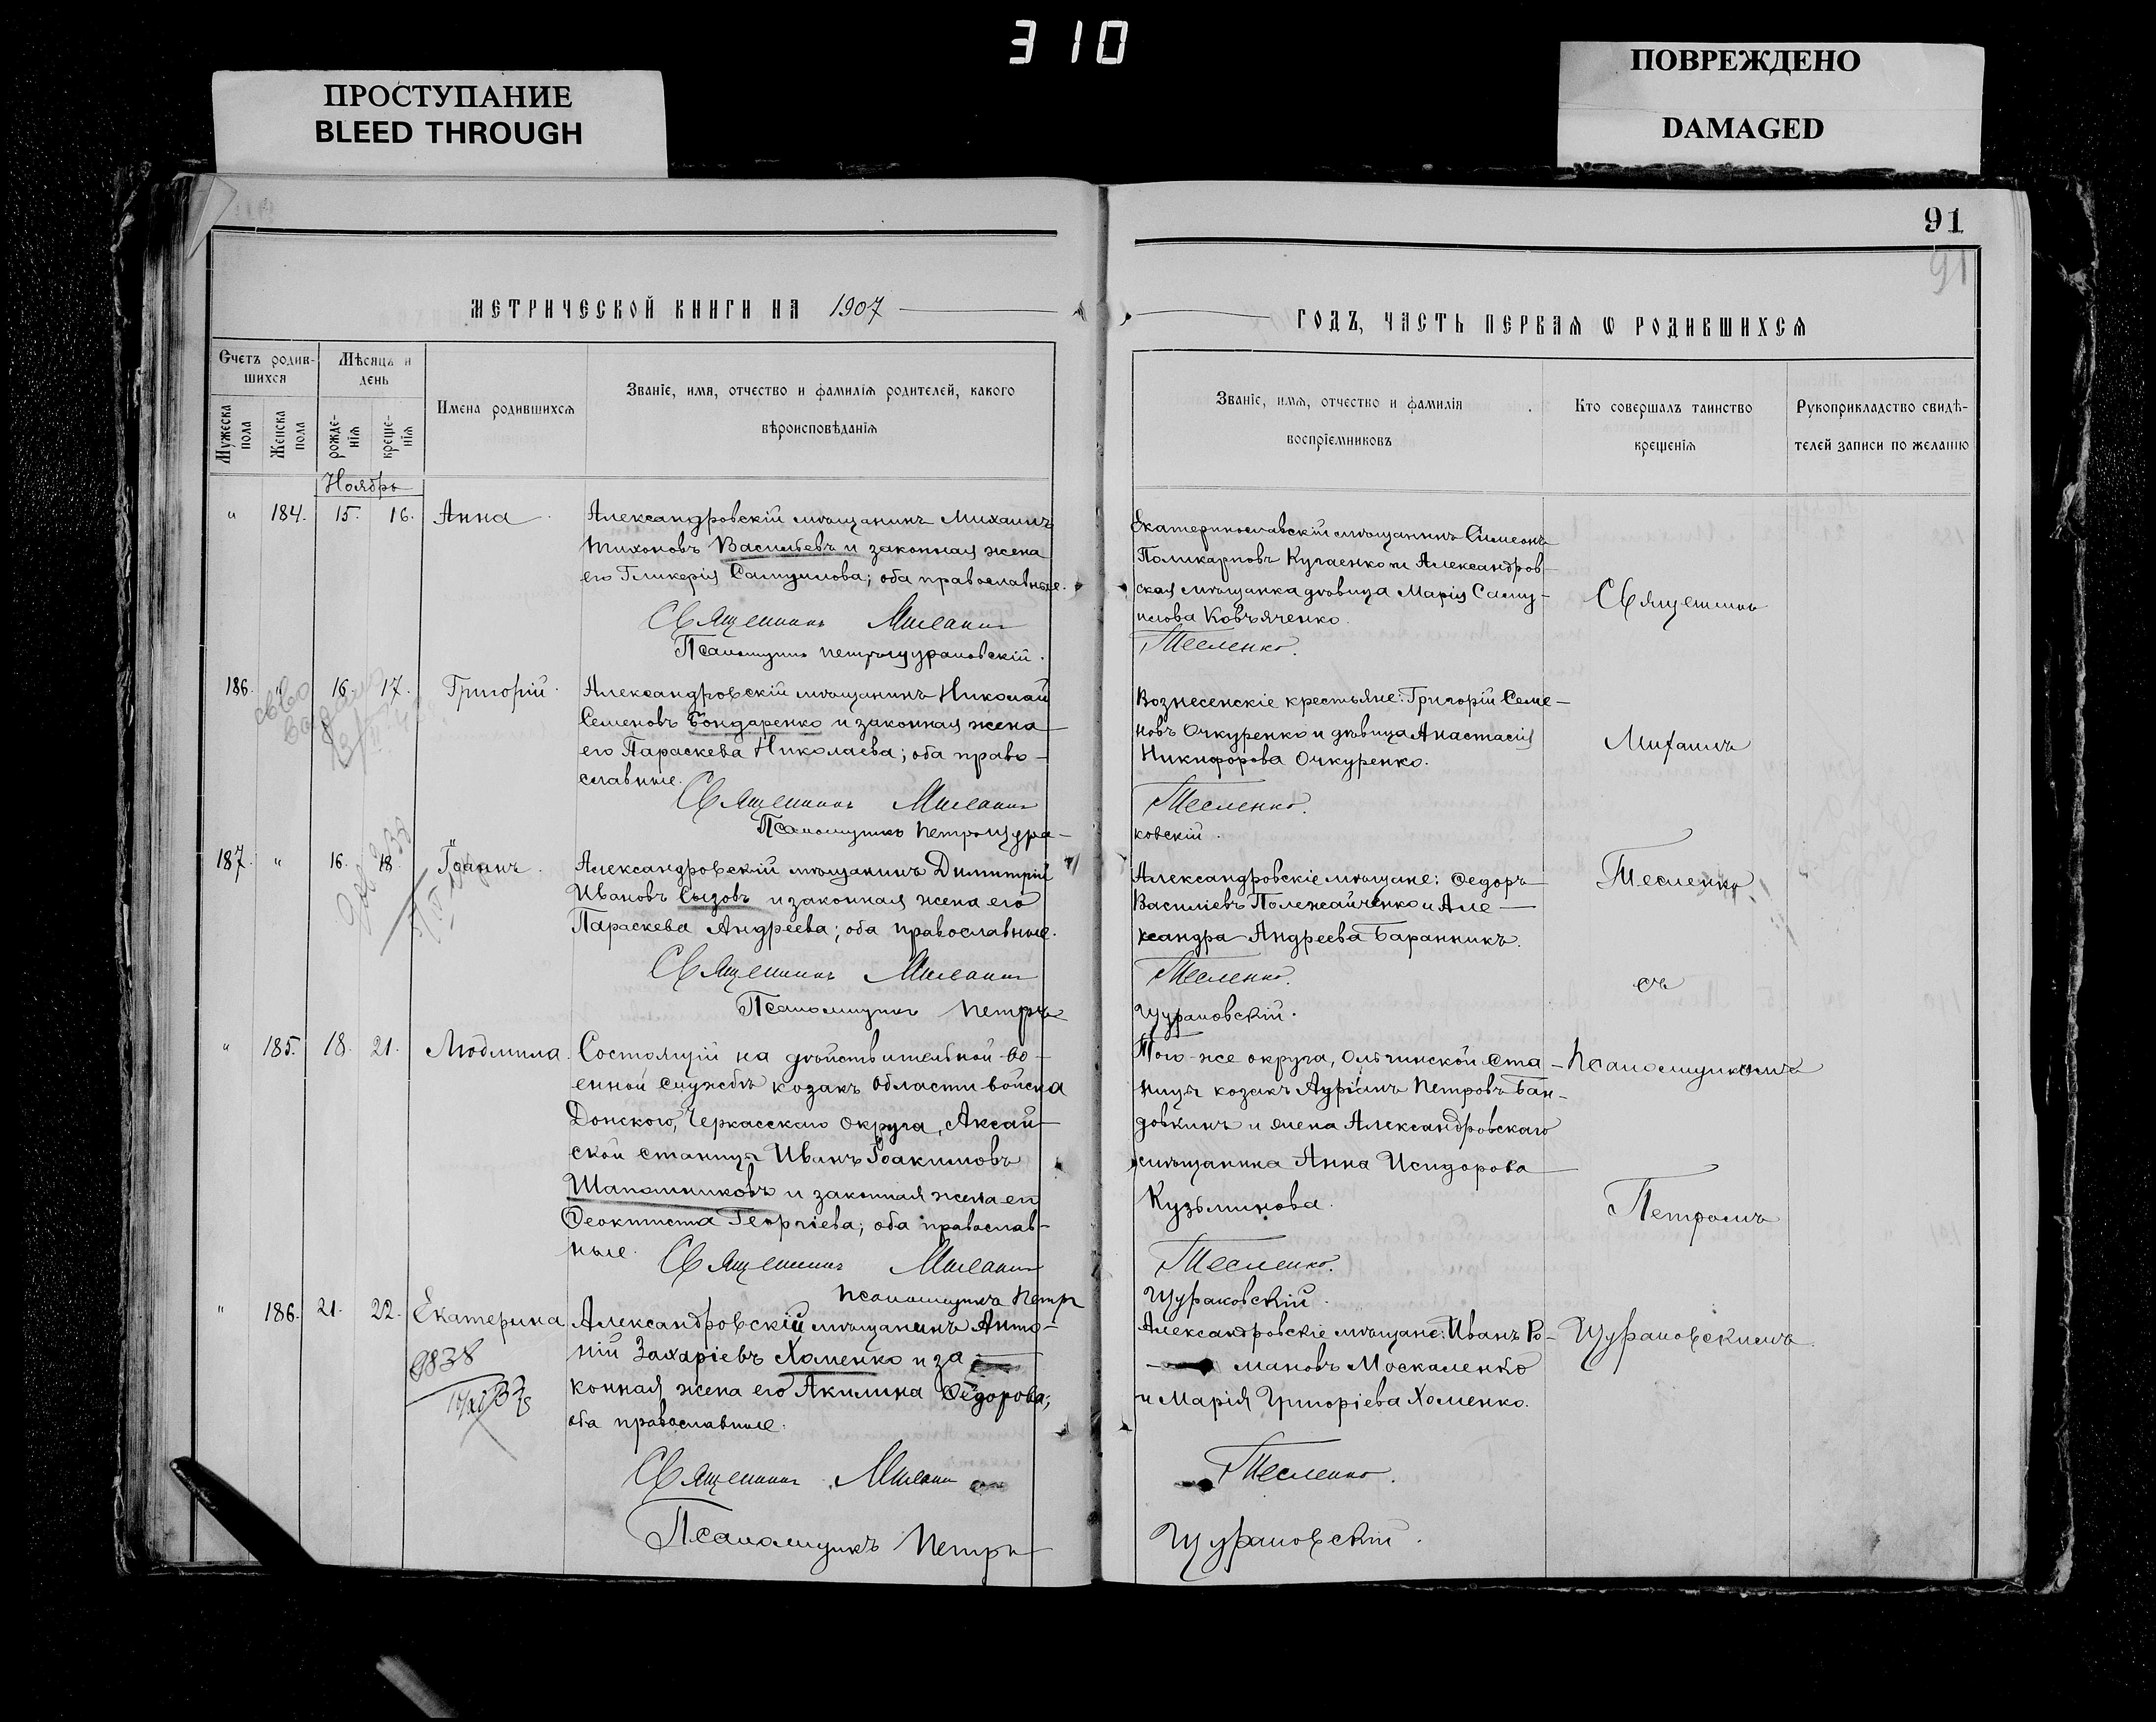 310
ПРОСТУПАНИЕ
BLEED THROUGH
ПОВРЕЖДЕНО
DAMAGED
91
91
МЕТРИЧЕСКОЙ КНИГИ НА 1907
ГОДЪ, ЧАСТЬ ПЕРВАЯ Ѡ РОДИВШИХСЯ
Счетъ родив-
шихся
Мѣсяцъ и
день
Мужеска
пола
Женска
пола
рожде-
нія
креще-
нія
Имена родившихся
Званіе, имя, отчество и фамилія родителей, какого
вѣроисповѣданія
Званіе, имя, отчество и фамилія
воспріемниковъ
Кто совершалъ таинство
крещенія
Рукоприкладство свидѣ-
телей записи по желанію
Ноябрь
" 184. 15. 16. Анна
Александровскій мѣщанинъ Михаилъ
Тихоновъ Васильевъ и законная жена
его Гликерія Самуилова; оба православные.
Священникъ Михаилъ
Псаломщикъ Петръ Щураковскій.
Екатеринославскій мѣщанинъ Симеонъ
Поликарповъ Кугаенко и Александров-
ская мѣщанка дѣвица Марія Саму-
илова Ковъяченко.
Тесленко.
186. " 16. 17. Григорій.
Александровскій мѣщанинъ Николай
Семеновъ Бондаренко и законная жена
его Параскева Николаева; оба право-
славные.
Священникъ Михаилъ
Псаломщикъ Петръ Щура-
Вознесенскіе крестьяне: Григорій Семе-
новъ Очкуренко и дѣвица Анастасія
Никифорова Очкуренко.
Тесленко.
ковскій.
187. " 16. 18. Іоаннъ.
Александровскій мѣщанинъ Димитрій
Ивановъ Сызовъ и законная жена его
Параскева Андреева; оба православные.
Священникъ Михаилъ
Псаломщикъ Петръ
Александровскіе мѣщане: Ѳедоръ
Василіевъ Полежайченко и Але-
ксандра Андреева Баранникъ.
Тесленко.
Щураковскій.
" 185. 18. 21. Людмила.
Состоящій на дѣйствительной во-
енной службѣ козакъ области войска
Донского, Черкасскаго округа, Аксай-
ской станицы Иванъ Іоакимовъ
Шапошниковъ и законная жена его
Ѳеоктиста Георгіева; оба православ-
ные.
Священникъ Михаилъ
Псаломщикъ Петръ
Того-же округа, Ольгинской ста-
ницы козакъ Петровъ
и жена Александровскаго
мѣщанина Анна Исидорова
Кузьминова.
Тесленко.
Щураковскій.
" 186. 21. 22. Екатерина
9838
Александровскій мѣщанинъ Анто-
ній Захаріевъ Хоменко и за
конная жена его Акилина Ѳедорова;
оба православные.
Священникъ Михаилъ
Псаломщикъ Петръ
Александровскіе мѣщане: Иванъ Ро-
мановъ Москаленко
и Марія Григоріева Хоменко.
Тесленко.
Щураковскій.
Священникъ
Михаилъ
Тесленко
съ
Псаломщикомъ
Петромъ
Щураковскимъ.